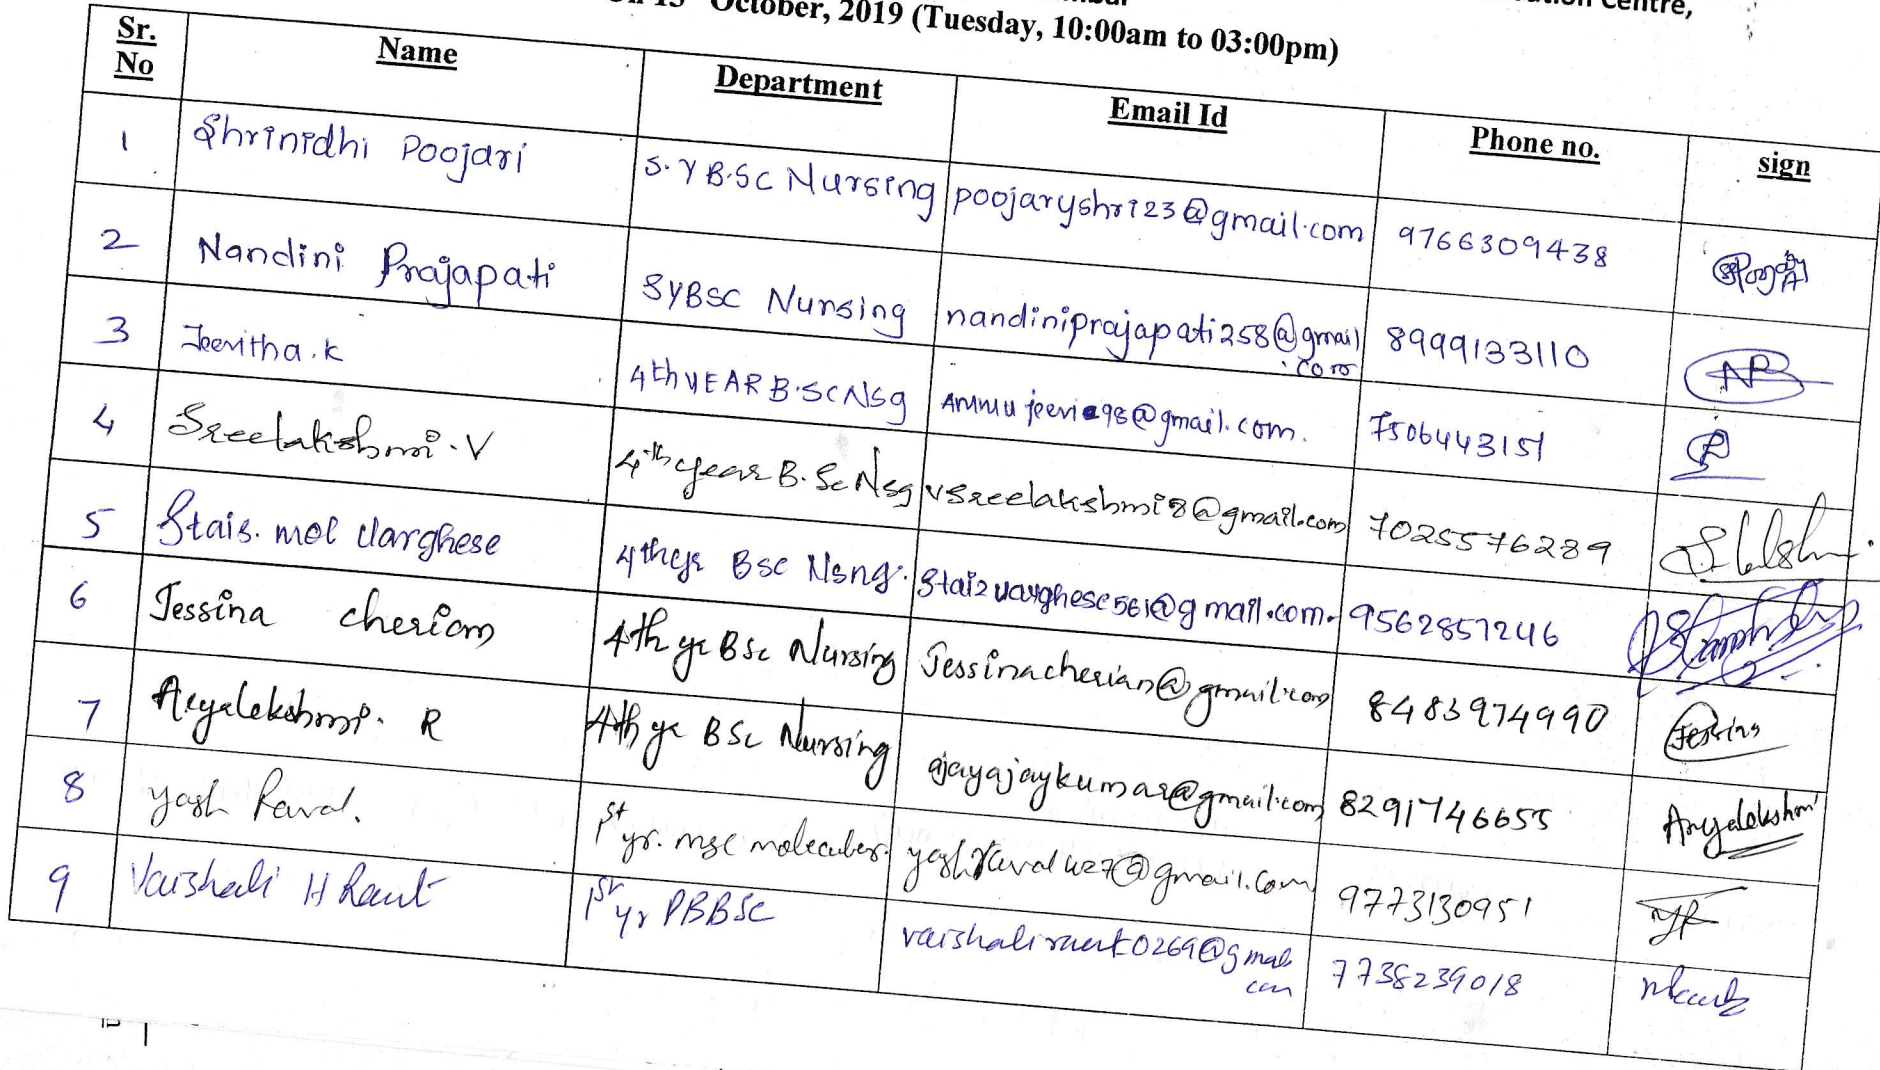 October, 2019 (Tuesday, 10:00am to 03:00pm)
Centre,
Sr. No Name Department Email Id Phone no. sign
1 Shrinidhi Poojari S.Y B.SC Nursing poojaryshri23@gmail.com 9766309438
2 Nandini Prajapati SYBSC Nursing nandiniprajapati258@gmail.com 8999133110 NP
3 Jeevitha.K 4th YEAR B.SC NSg 7506443151
4 Sreelakshmi.V 4th year B.Sc Nsg vsreelakshmi8@gmail.com 7025576289
5 Stais. mol Varghese 4th yr BSC Nsng. Staizvarghese561@gmail.com. 9562857246
6 Jessina cherian 4th yr BSc Nursing Jessinacherian@gmail.com 8483974990 Jessina
7 Aryalekshmi. R 4th yr BSc Nursing ajayajaykumar@gmail.com 8291746655 Aryalekshmi
8 yash Raval. 1st yr. msc molecular. 9773130951
9 Vaishali H Raut 1st yr PBBSC vaishaliraut0269@gmail.com 7738239018